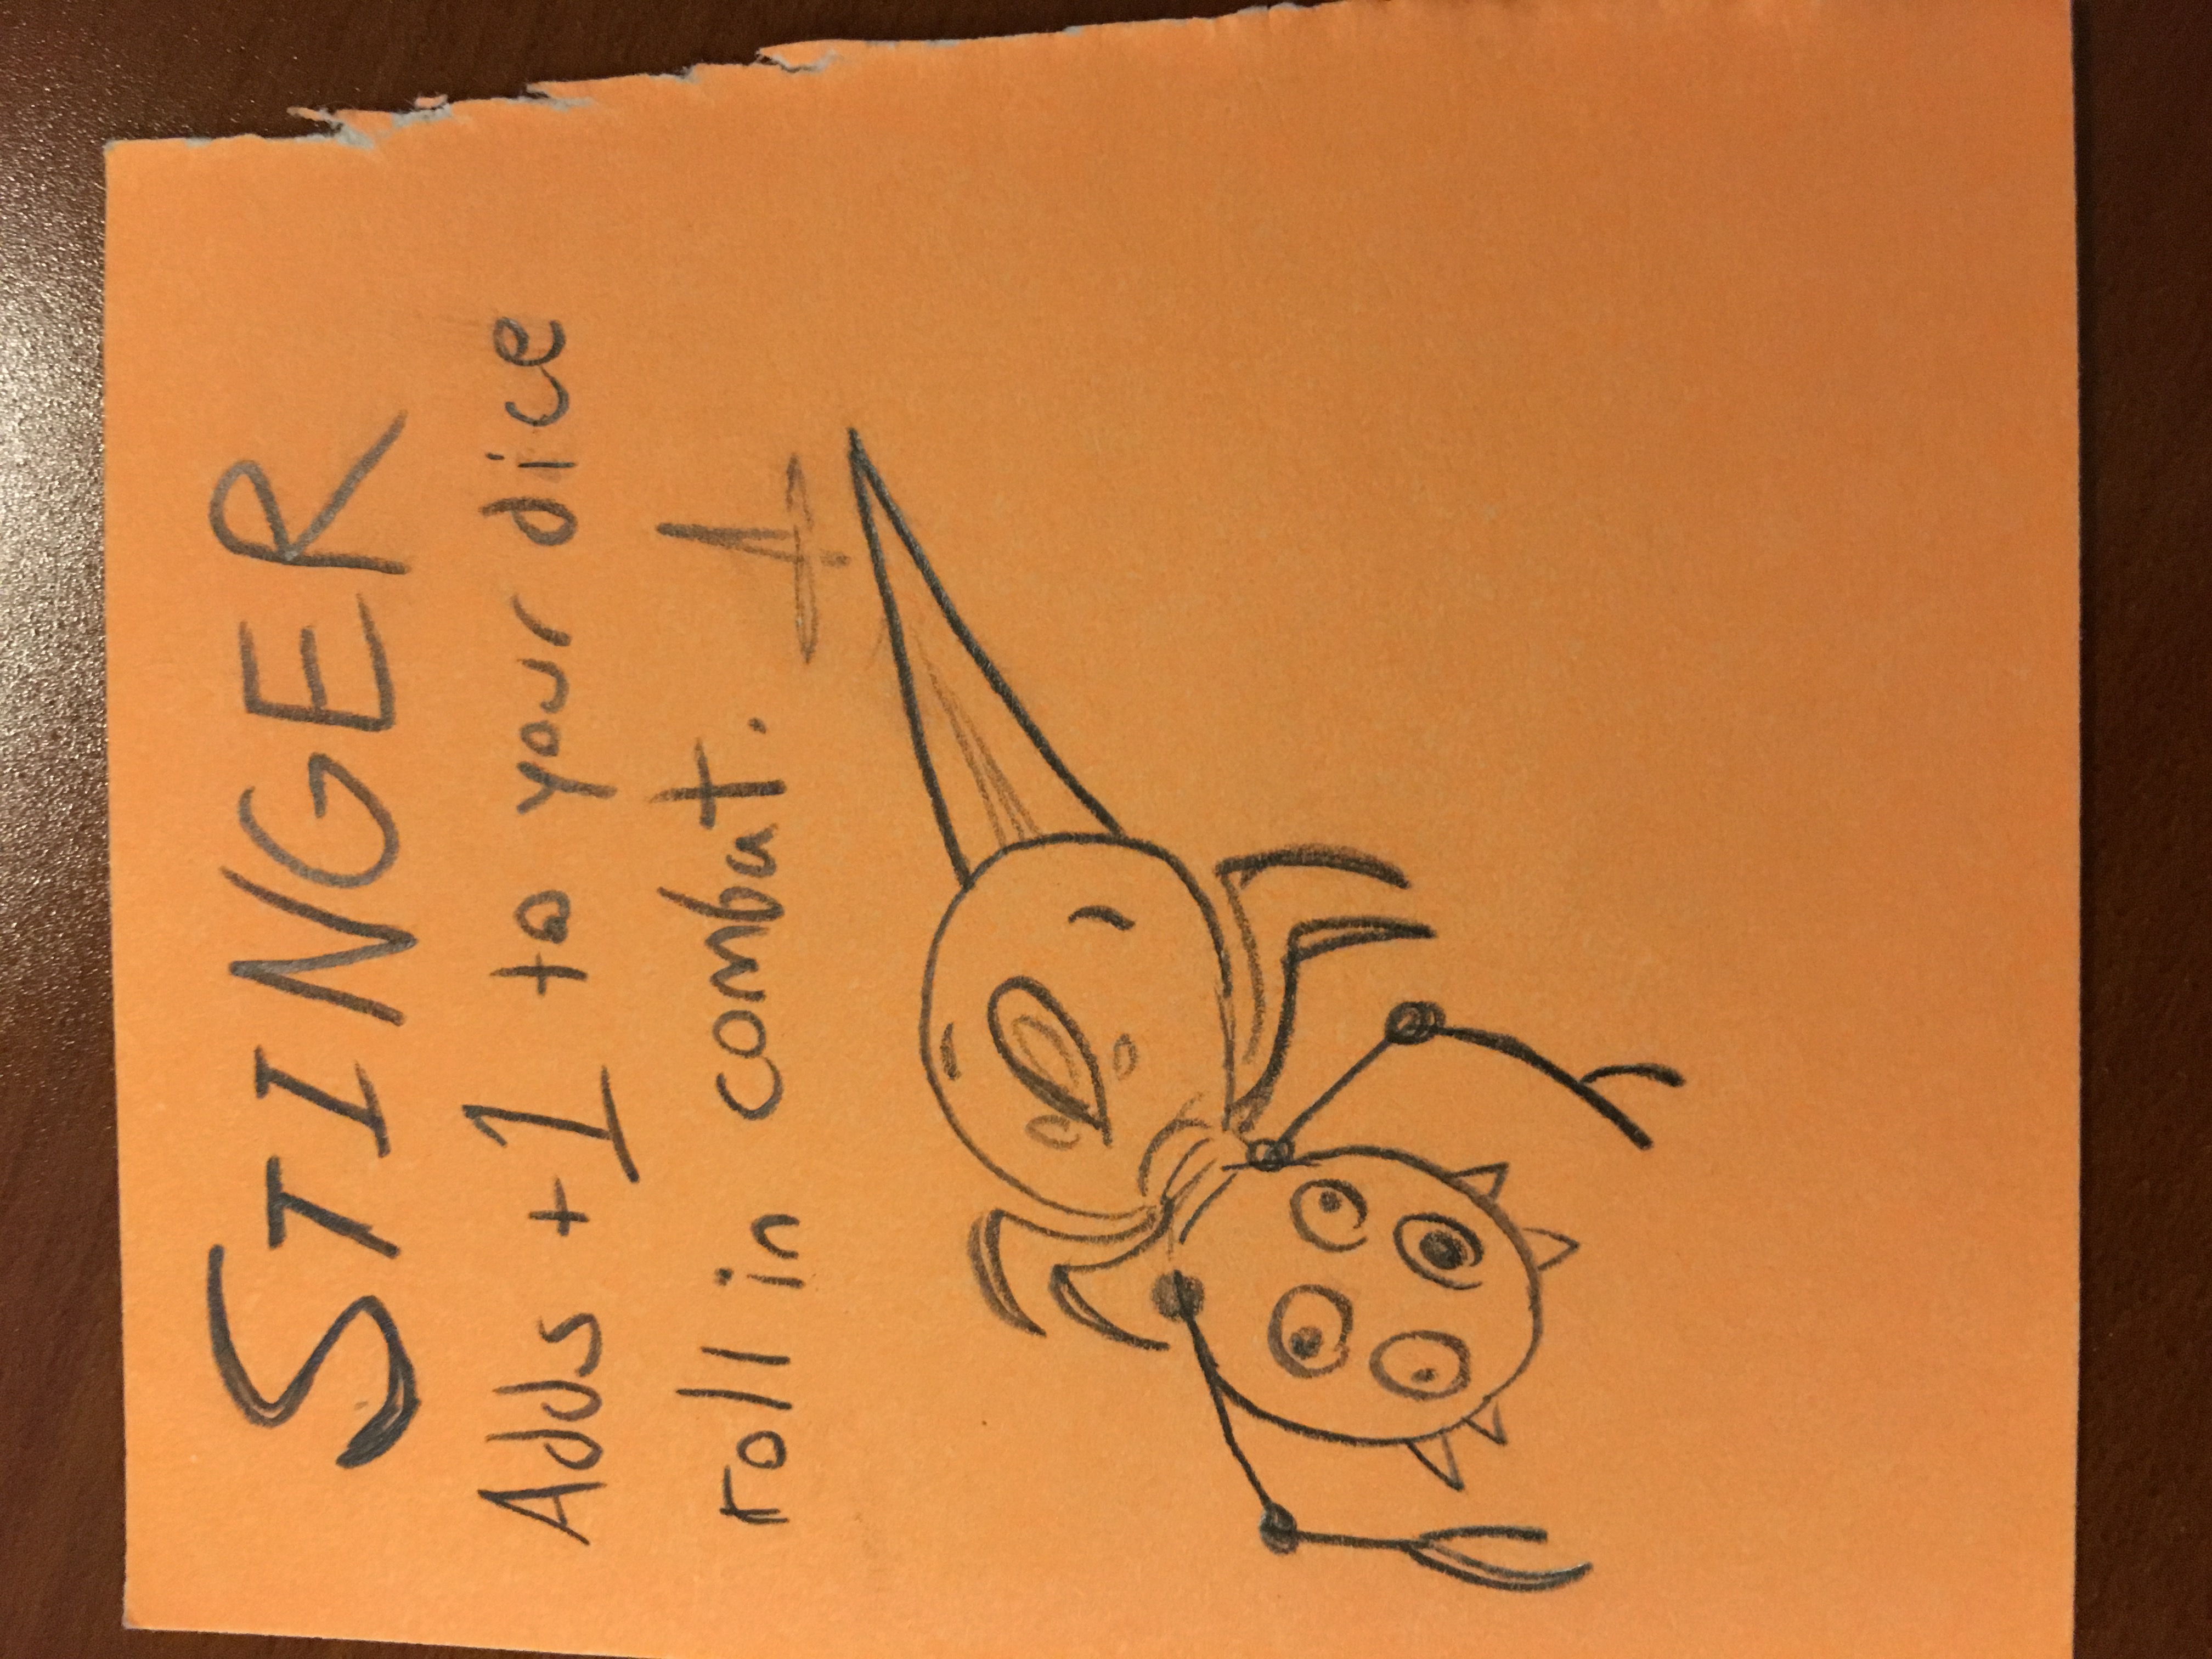 STINGER
Adds +1 to your dice
roll in combat.